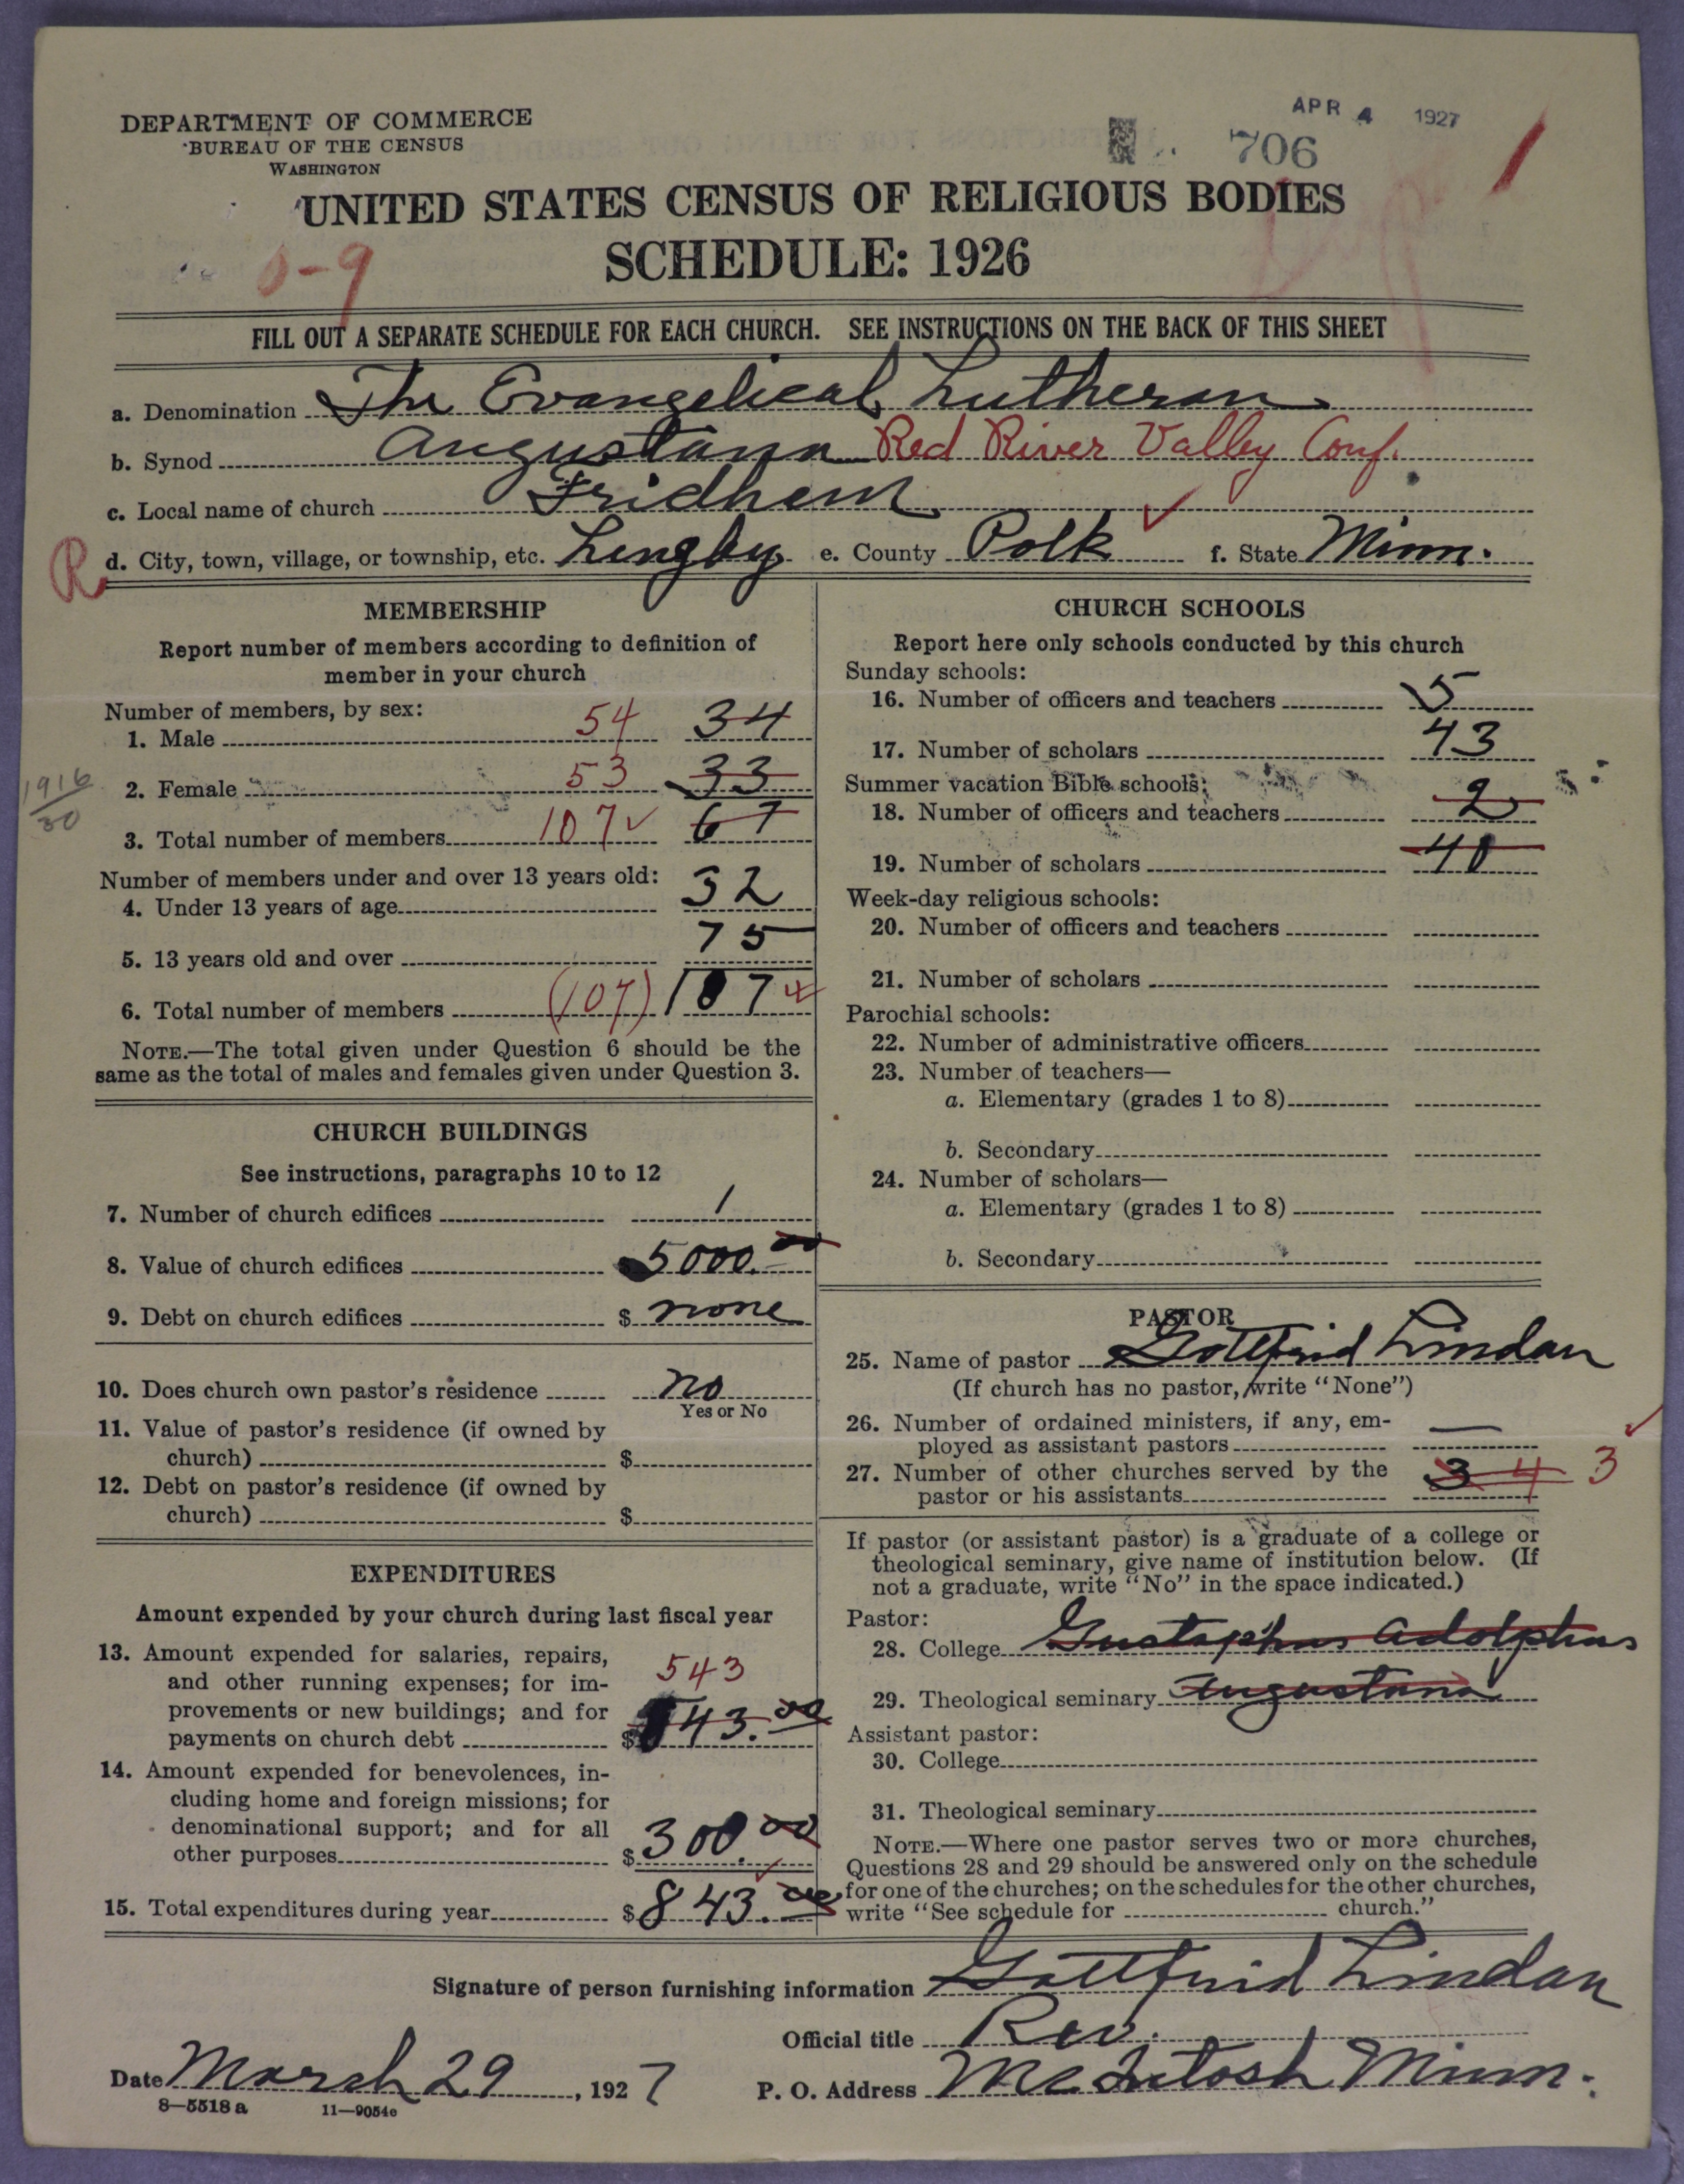 DEPARTMENT OF COMMERCE
BUREAU OF THE CENSUS
WASHINGTON
APR 4 1927
706
1
UNITED STATES CENSUS OF RELIGIOUS BODIES
SCHEDULE: 1926
0-9
FILL OUT A SEPARATE SCHEDULE FOR EACH CHURCH. SEE INSTRUCTIONS ON THE BACK OF THIS SHEET
a. Denomination The Evangelical Lutheran
b. Synod Augustana Red River Valley Conf.
c. Local name of church Fridhem
R d. City, town, village, or township, etc. Lengby e. County Polk ✓ f. State Minn.
MEMBERSHIP
Report number of members according to definition of
member in your church
Number of members, by sex:
1. Male 54 34
1916
30
2. Female 53 33
3. Total number of members 107 ✓ 67
Number of members under and over 13 years old:
4. Under 13 years of age 32
5. 13 years old and over 75
6. Total number of members (107) 107
NOTE.—The total given under Question 6 should be the
same as the total of males and females given under Question 3.
CHURCH BUILDINGS
See instructions, paragraphs 10 to 12
7. Number of church edifices 1
8. Value of church edifices 5000.00
9. Debt on church edifices $ none
10. Does church own pastor's residence no
Yes or No
11. Value of pastor's residence (if owned by
church) $
12. Debt on pastor's residence (if owned by
church) $
EXPENDITURES
Amount expended by your church during last fiscal year
13. Amount expended for salaries, repairs,
and other running expenses; for im-
provements or new buildings; and for
payments on church debt $ 543 543.00
14. Amount expended for benevolences, in-
cluding home and foreign missions; for
denominational support; and for all
other purposes $ 300.00
15. Total expenditures during year $ 843.00
CHURCH SCHOOLS
Report here only schools conducted by this church
Sunday schools:
16. Number of officers and teachers 5
17. Number of scholars 43
Summer vacation Bible schools:
18. Number of officers and teachers 2
19. Number of scholars 40
Week-day religious schools:
20. Number of officers and teachers
21. Number of scholars
Parochial schools:
22. Number of administrative officers
23. Number of teachers—
a. Elementary (grades 1 to 8)
b. Secondary
24. Number of scholars—
a. Elementary (grades 1 to 8)
b. Secondary
PASTOR
25. Name of pastor Gottfrid Lindau
(If church has no pastor, write "None")
26. Number of ordained ministers, if any, em-
ployed as assistant pastors —
27. Number of other churches served by the
pastor or his assistants 3 4 3 ✓
If pastor (or assistant pastor) is a graduate of a college or
theological seminary, give name of institution below. (If
not a graduate, write "No" in the space indicated.)
Pastor:
28. College Gustaphus Adolphus
29. Theological seminary Augustana
Assistant pastor:
30. College
31. Theological seminary
NOTE.—Where one pastor serves two or more churches,
Questions 28 and 29 should be answered only on the schedule
for one of the churches; on the schedules for the other churches,
write "See schedule for church."
Signature of person furnishing information Gottfrid Lindau
Official title Rev.
Date March 29, 1927
P. O. Address McIntosh Minn.
8—5518 a 11—9054e